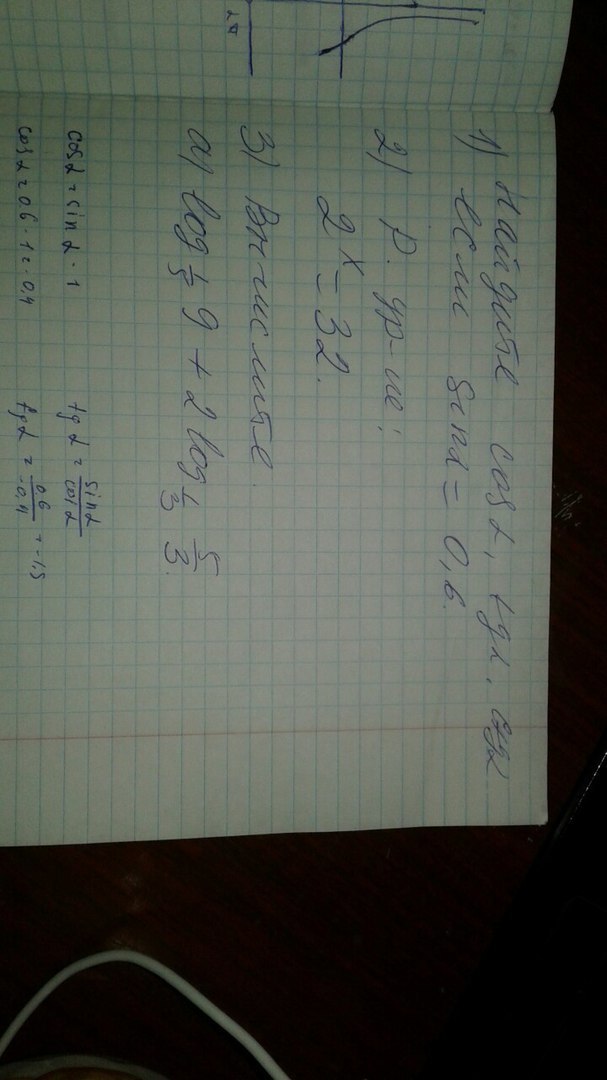 1) Найдите cos α, tg α, ctg α
если sin α = 0,6.
2) р. ур-ие:
2ˣ = 32.
3) Вычислите.
а) log 9 + 2 log 1/3 5/3.
cos α = sin α - 1
tg α = sin α / cos α
cos α = 0.6 - 1 = -0.4
tg α = 0.6 / -0.4 = -1.5